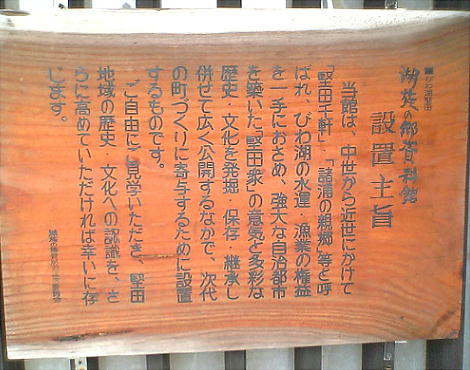 ■びわ湖堅田
湖族の郷資料館
設置主旨
当館は、中世から近世にかけて
「堅田千軒」・「諸浦の親郷」等と呼
ばれ、びわ湖の水運・漁業の権益
を一手におさめ、強大な自治都市
を築いた「堅田衆」の意気と多彩な
歴史・文化を発掘・保存・継承し
併せて広く公開するなかで、次代
の町づくりに寄与するために設置
するものです。
ご自由にご見学いただき、堅田
地域の歴史・文化への認識を、さ
らに高めていただければ幸いに存
じます。